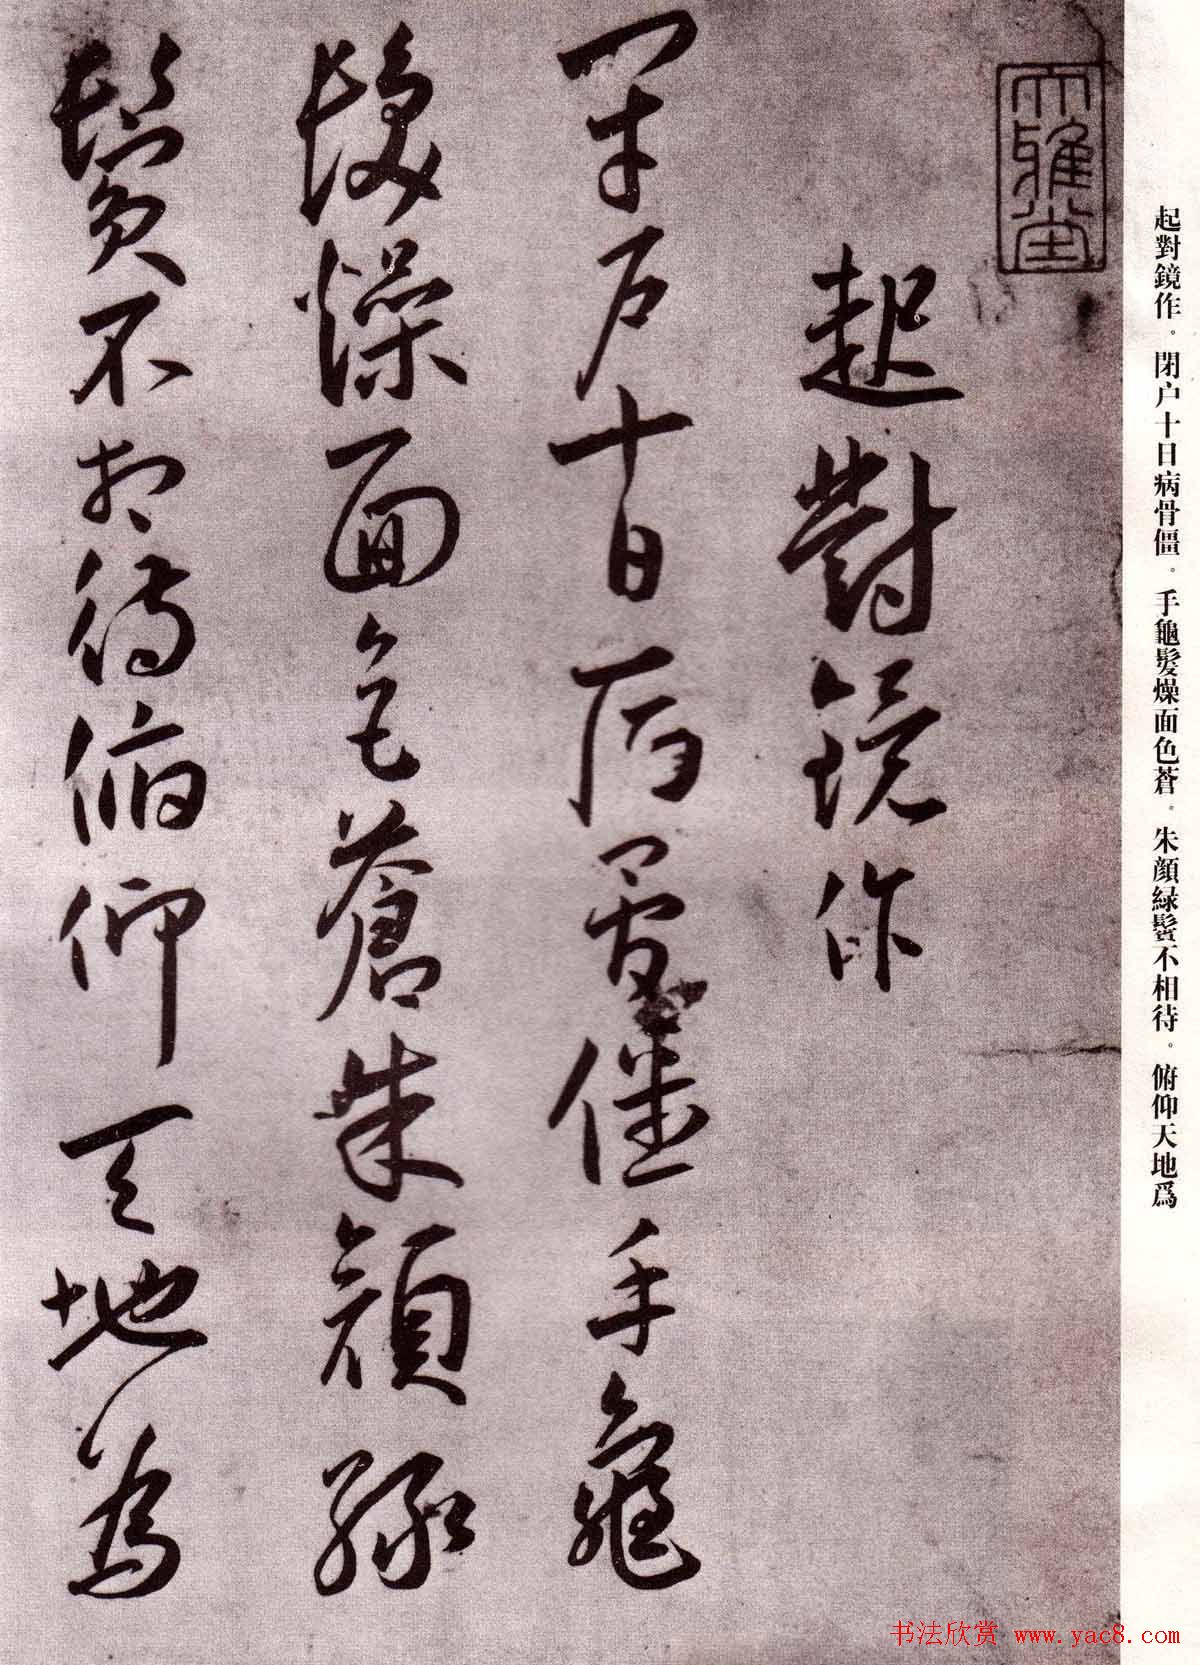 起對鏡作。閉户十日病骨僵。手龜髮燥面色蒼。朱顔緑鬓不相待。俯仰天地爲
大雅堂
起對鏡作
閉户十日病骨僵手龜
髮燥面色蒼朱顔緑
鬓不相待俯仰天地為
书法欣赏 www.yac8.com